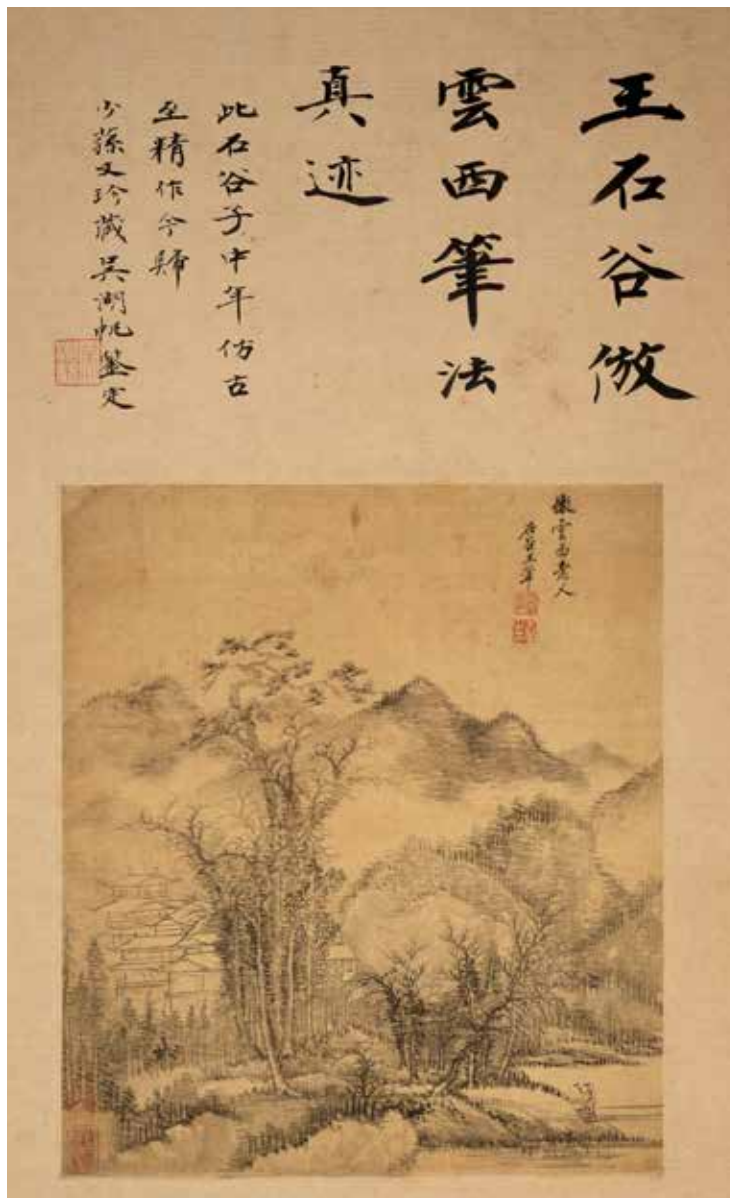 王石谷倣
雲西筆法
真迹
此石谷子中年仿古
至精作今歸
少蓀丈珍藏吳湖帆鑒定
雲西老人
王翬